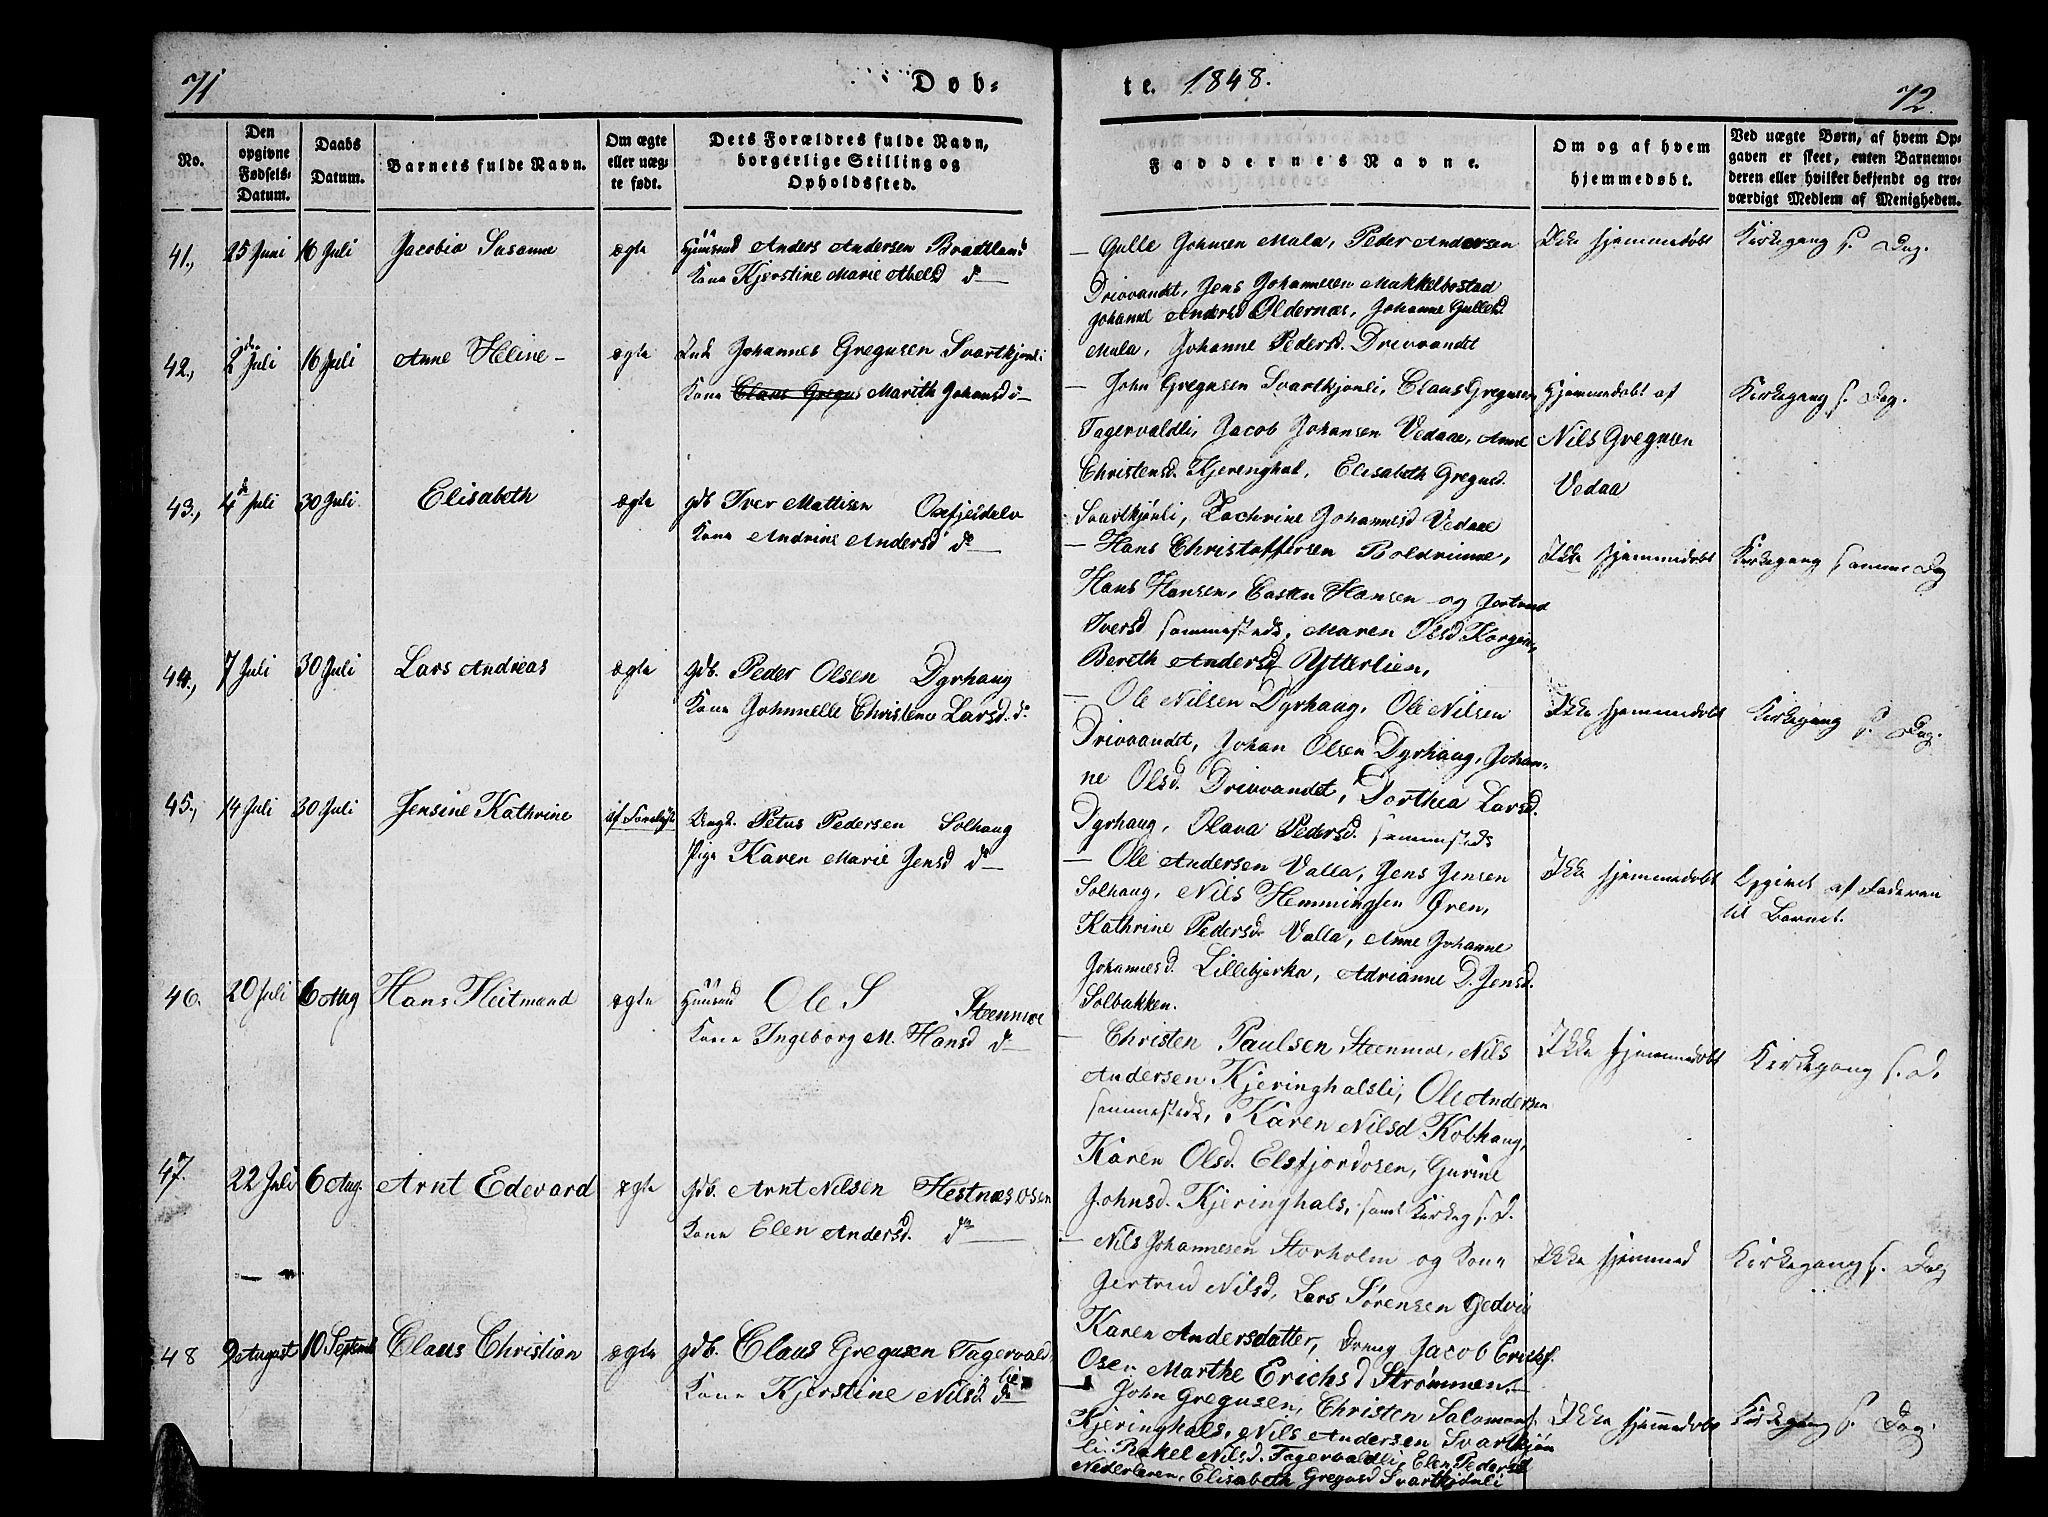 71
Døb-
te. 1848.
72.
No.
Den
opgivne
Fødsels-
Datum.
Daabs
Datum.
Barnets fulde Navn.
Om ægte
eller uæg-
te født.
Dets Forældres fulde Navn,
borgerlige Stilling og
Opholdssted.
Faddernes Navne.
Om og af hvem
hjemmedøbt.
Ved uægte Børn, af hvem Op-
gaven er skeet, enten Barnemo-
deren eller hvilket bekjendt og tro-
værdigt Medlem af Menigheden.
41., 25 Juni 16 Juli Jacobia Susanna ægte Huusmd Anders Andersen Bradtland
Kone Kjerstine Marie Abelsd do
— Gulle Johnsen Mula, Peder Andersen
Drivvandet, Jens Johannesen Makkelbostad
Johanne Andersd Oldernæs, Johanne Gullesd
Mula, Johanne Pedersd. Drivvandet
Ikke hjemmedøbt
Kirkegang s. Dag.
42., 2den Juli 16 Juli Anne Heline — ægte Inds Johannes Gregusen Svartkjønli
Kone Claus Gregus Marith Johansd do
— John Gregusen Svartkjønli, Claus Gregusen
Tagervaldli, Jacob Johansen Vedaae, Anne
Christensd. Kjerenghal, Elisabeth Gregusd.
Svartkjønli, Zachrine Johannesd Vedaae
Hjemmedøbt af
Nils Gregusen
Vedaa
Kirkegang s. Dag.
43., 4de Juli 30 Juli Elisabeth ægte Gdb. Iver Mattisen Oxfjeldelv
Kone Andrine Andersd do
— Hans Christoffersen Boldvinne,
Hans Hansen, Casten Hansen og Jertrud
Iversd sammesteds, Maren Olsd Korgen,
Bereth Andersd Ytterlien,
Ikke hjemmedøbt
Kirkegang samme Dag
44., 7 Juli 30 Juli Lars Andreas ægte Gdb. Peder Olsen Dyrhaug
Kone Johnnelle Christence Larsd. do
— Ole Nilsen Dyrhaug, Ole Nilsen
Drivvandet, Johan Olsen Dyrhaug, Johan-
ne Olsd. Drivvandet, Dorthea Larsd.
Dyrhaug, Olava Pedersd. sammesteds
Ikke hjemmedøbt
Kirkegang s. Dag.
45., 14 Juli 30 Juli Jensine Kathrine Ungk. Petus Pedersen Solhaug
Pige Karen Marie Jensd do
— Ole Andersen Valla, Jens Jensen
Solhaug, Nils Hemmingsen Øren,
Kathrine Pedersd Valla, Anne Johanne
Johannesd. Lillebjerka, Adrianne D. Jensd.
Solbakken.
Ikke hjemmedøbt
Opgivet af Faderen
til Barnet.
46. 20 Juli 6 Aug Hans Heitmand ægte Huusmd Ole S Steenmoe
Kone Ingeborg M. Hansd do
— Christen Paulsen Steenmoe, Nils
Andersen Kjeringhalsli, Ole Andersen
sammesteds, Karen Nilsd Kobhaug,
Karen Olsd. Elsfjordosen, Gurine
Johnsd. Kjeringhals, samt Kirkeg s. D.
Ikke hjemmedøbt
Kirkegang s. D.
47. 22 Juli 6 Aug. Arnt Edevard ægte Gdb. Arnt Nilsen Hestnæsosen
Kone Elen Andersd. do
— Nils Johannesen Storholm og Kone
Gertrud Nilsd, Lars Sørensen Gedvig
Karen Andersdatter, Dreng Jacob Erichs.
Osen Marthe Erichsd Strømmen.
Ikke hjemmed
Kirkegang s. Dag
48 2 August 10 Septemb Claus Christian ægte Gdb. Claus Gregusen Tagervald-
lie
Kone Kjerstine Nilsd. do
— John Gregusen, Christen Salomons.
Kjeringhals, Nils Andersen Svartkjøn
li Rakel Nilsd. Tagervaldli, Elen Pedersd
Nederleren, Elisabeth Gregusd Svartkjønli
Ikke hjemmedøbt
Kirkegang s. Dag.